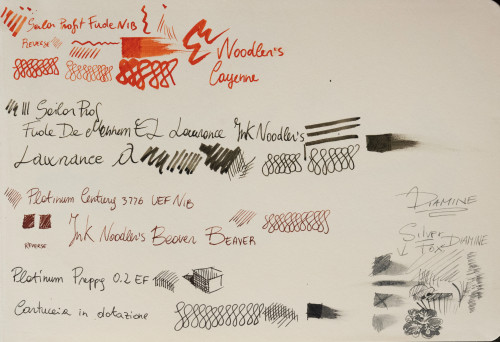 Sailor Profit Fude Nib
Reverse
Noodler's
Cayenne
Sailor Prof
Fude De Mannum EL Lawrance Ink Noodler's
Lawrance a
Platinum Century 3776 UEF Nib
Reverse
Ink Noodler's Beaver Beaver
Diamine
Silver Diamine
Fox
Platinum Preppy 0.2 EF
Cartuccia in dotazione